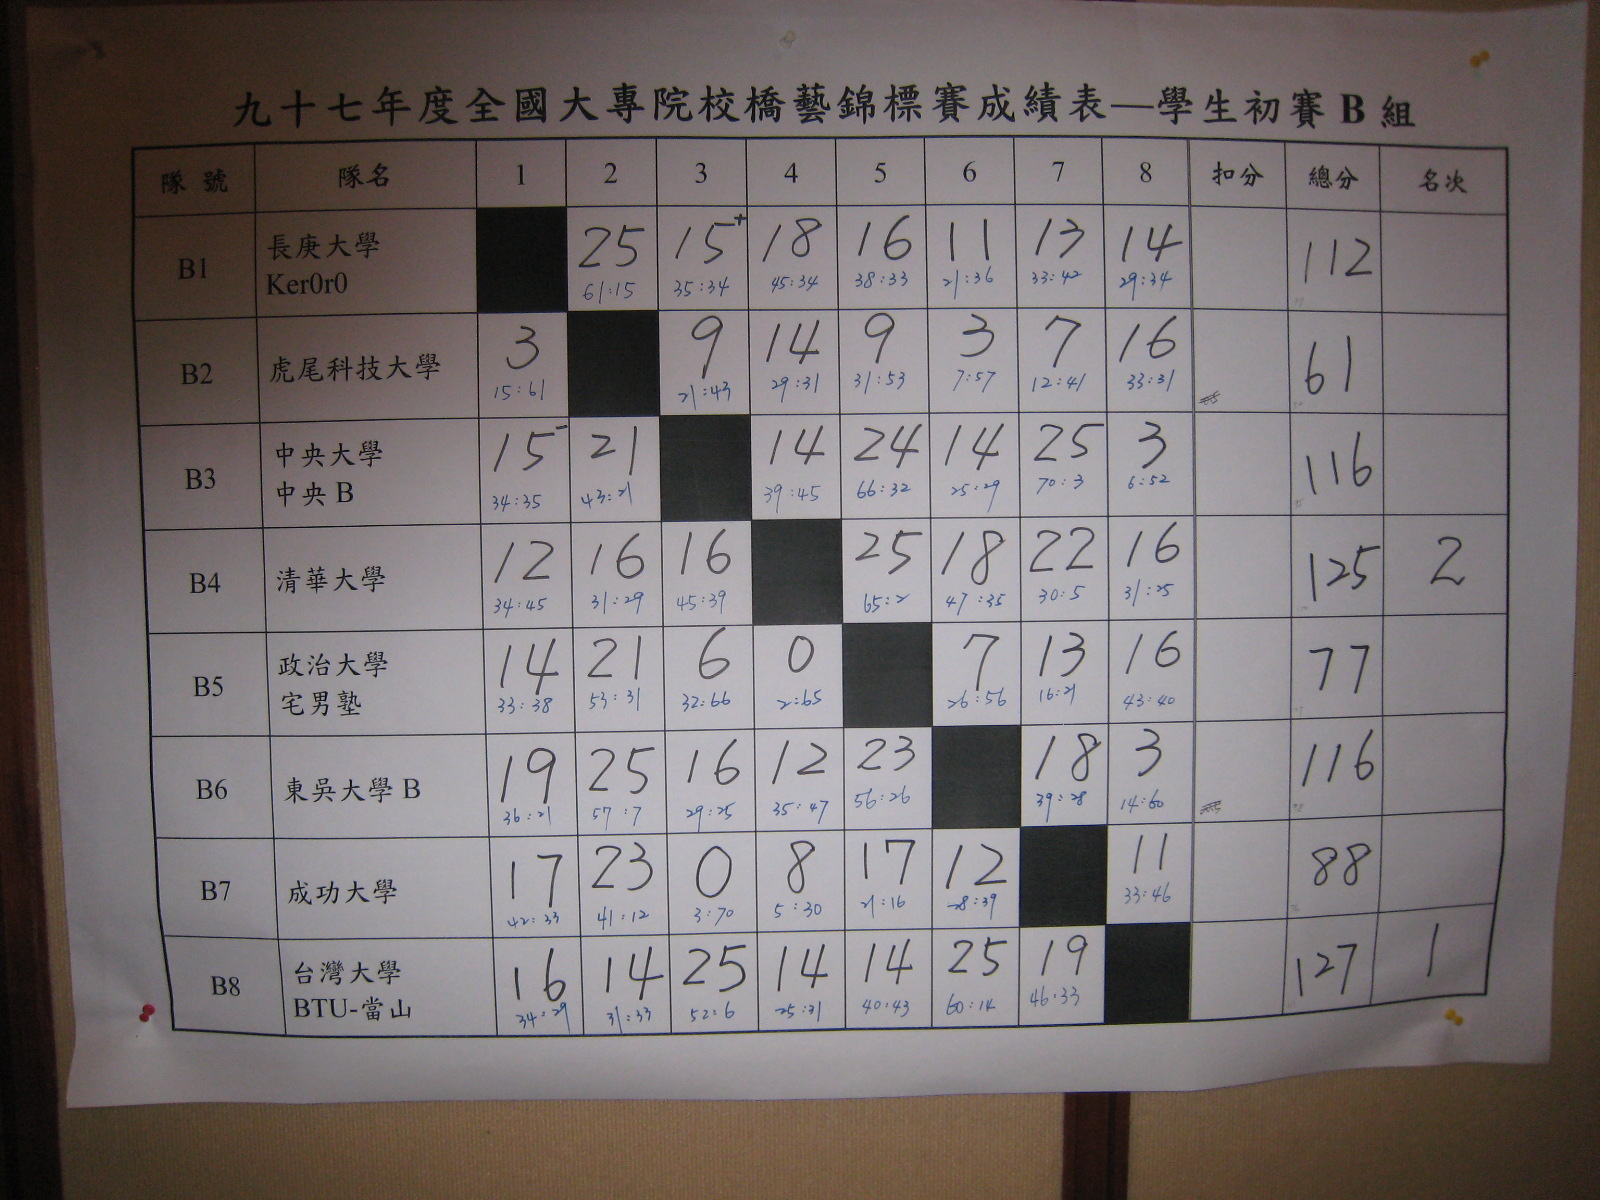 九十七年度全國大專院校橋藝錦標賽成績表—學生初賽 B 組
隊 號 隊名 1 2 3 4 5 6 7 8 扣分 總分 名次
B1 長庚大學 Ker0r0 25 15+ 18 16 11 13 14 112
61:15 35:34 45:34 38:33 21:36 33:42 29:34
B2 虎尾科技大學 3 9 14 9 3 7 16 61
15:61 21:43 29:31 31:53 7:57 12:41 33:31
B3 中央大學 中央 B 15- 21 14 24 14 25 3 116
34:35 43:21 39:45 66:32 25:29 70:3 6:52
B4 清華大學 12 16 16 25 18 22 16 125 2
34:45 31:29 45:39 65:2 47:35 30:5 31:25
B5 政治大學 宅男塾 14 21 6 0 7 13 16 77
33:38 53:31 32:66 2:65 26:56 16:21 43:40
B6 東吳大學 B 19 25 16 12 23 18 3 116
36:21 57:7 29:25 35:47 56:26 39:28 14:60
B7 成功大學 17 23 0 8 17 12 11 88
42:33 41:12 3:70 5:30 21:16 28:39 33:46
B8 台灣大學 BTU-當山 16 14 25 14 14 25 19 127 1
34:29 31:33 52:6 25:31 40:43 60:14 46:33